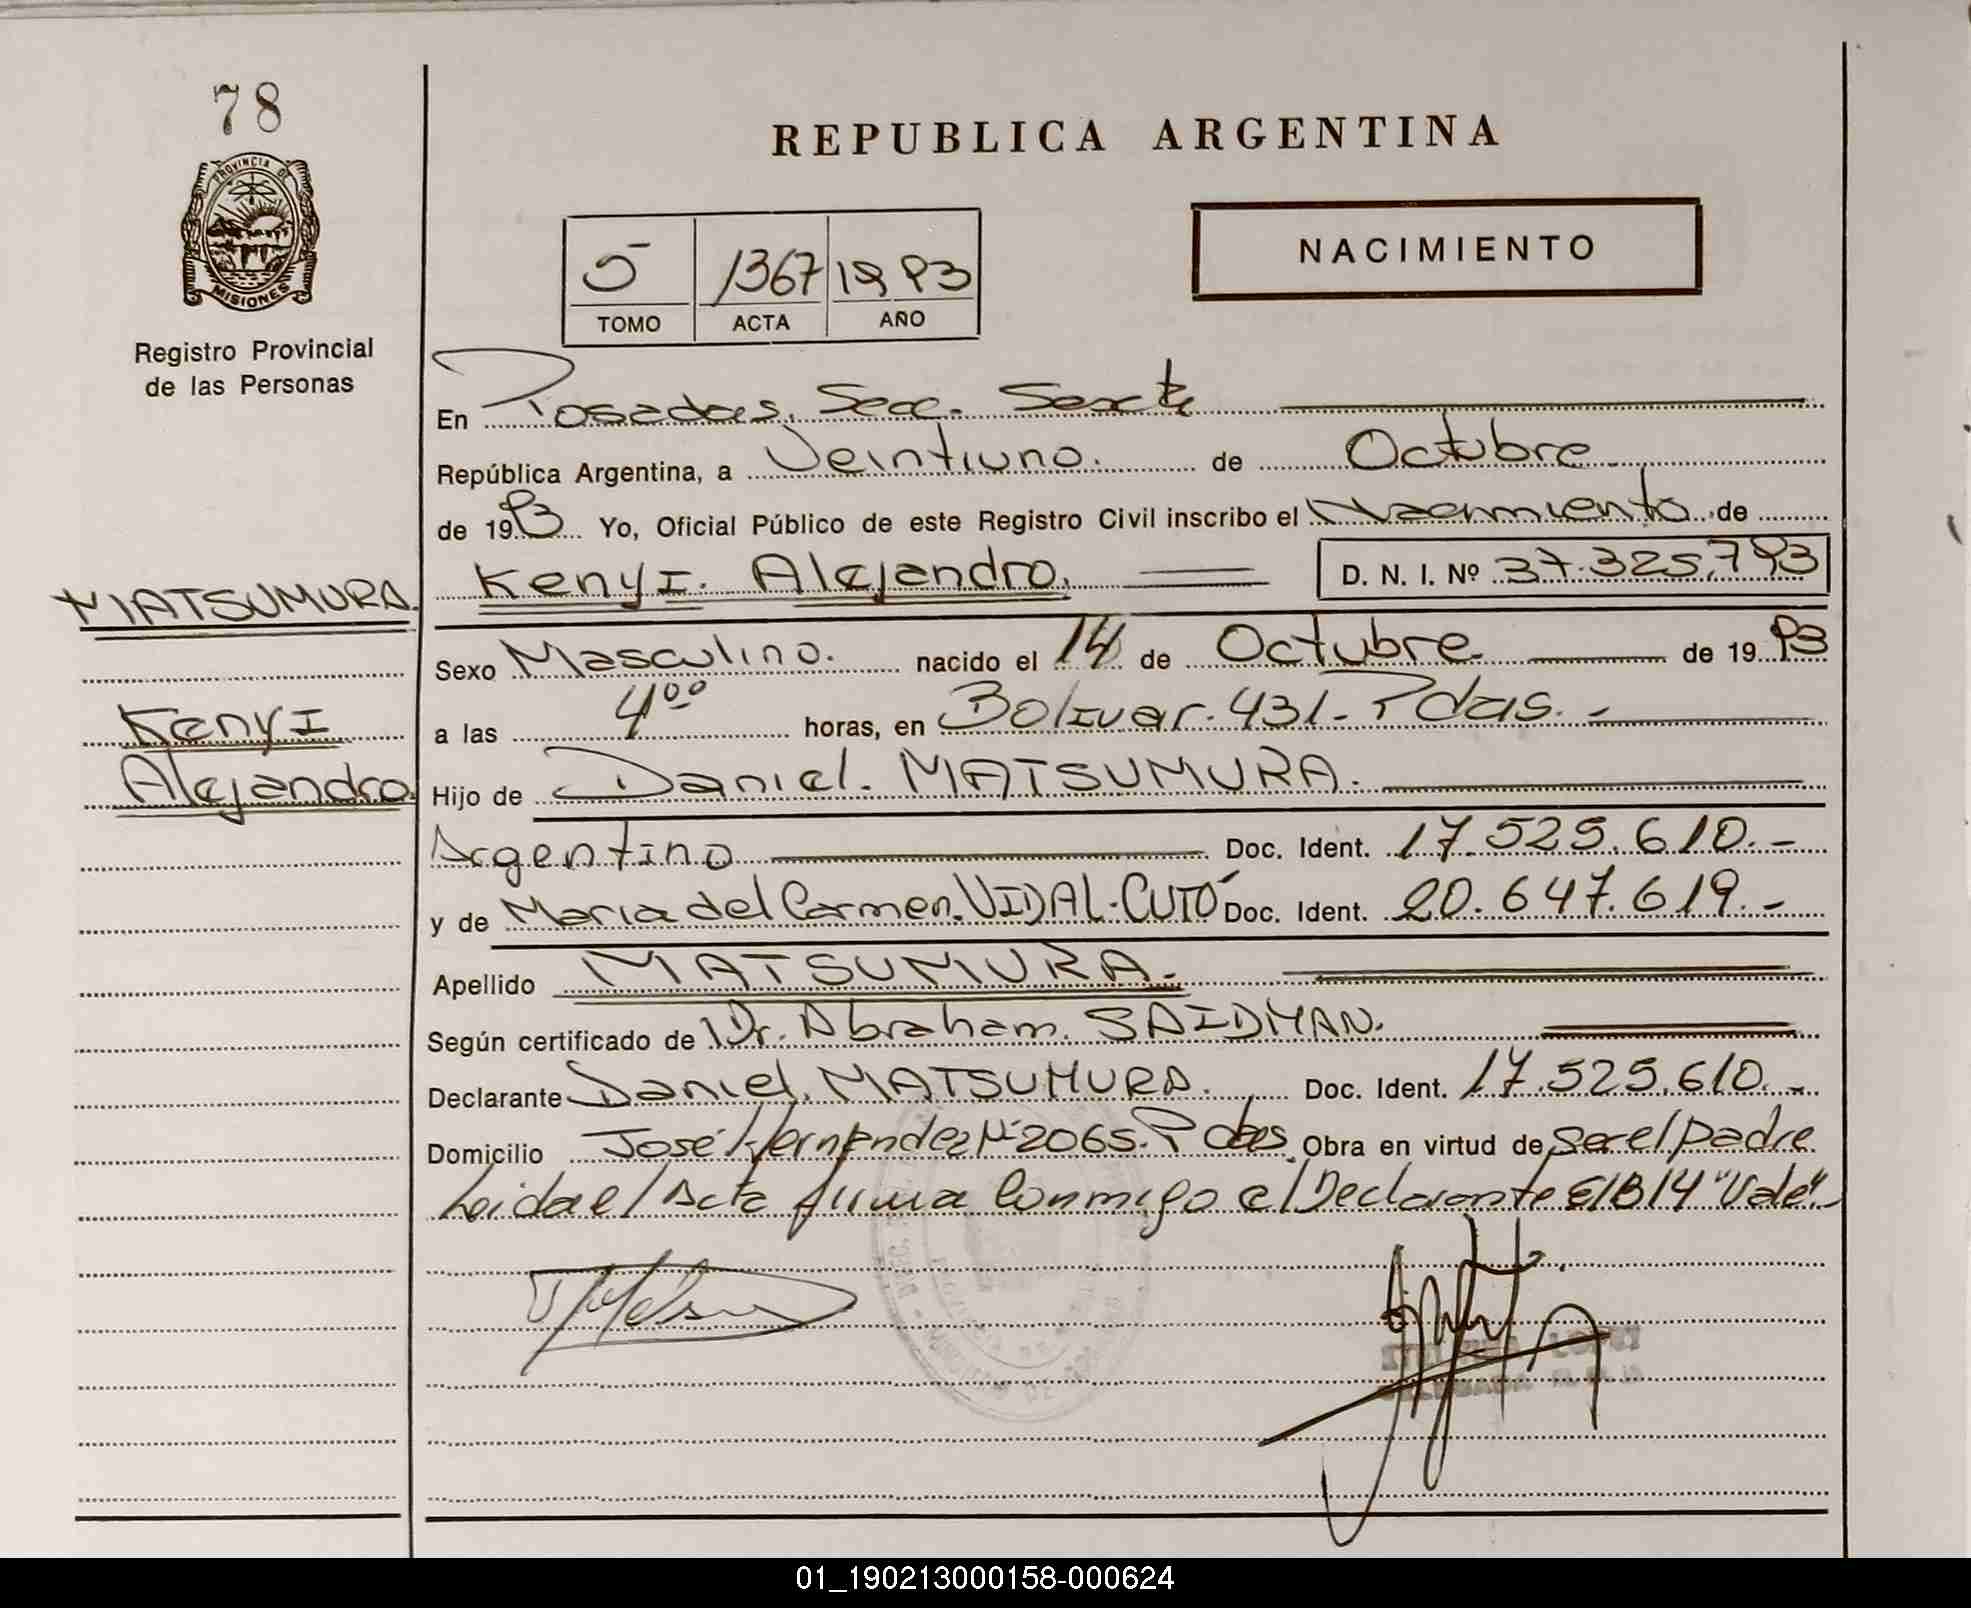 78
PROVINCIA DE
MISIONES
Registro Provincial
de las Personas
REPUBLICA ARGENTINA
NACIMIENTO
5 1367 1993
TOMO ACTA AÑO
En Posadas. Secc. Sexta
República Argentina, a Veintiuno. de Octubre
de 1993 Yo, Oficial Público de este Registro Civil inscribo el Nacimiento de
MATSUMURA. Kenyi. Alejandro. D. N. I. Nº 37.325.793
Sexo Masculino. nacido el 14 de Octubre. de 1993
Kenyi a las 4⁰⁰ horas, en Bolivar. 431. Pdas. -
Alejandro. Hijo de Daniel. MATSUMURA.
Argentino Doc. Ident. 17.525.610.-
y de Maria del Carmen. VIDAL. CUTÓ Doc. Ident. 20.647.619.-
Apellido MATSUMURA.
Según certificado de Dr. Abraham. SAIDMAN.
Declarante Daniel. MATSUMURA. Doc. Ident. 17.525.610.-
Domicilio José Hernandez Nº 2065. Pdas. Obra en virtud de ser el padre
Leida el Acta firma Conmigo el Declarante E/B 14 "Vale".-
01_190213000158-000624